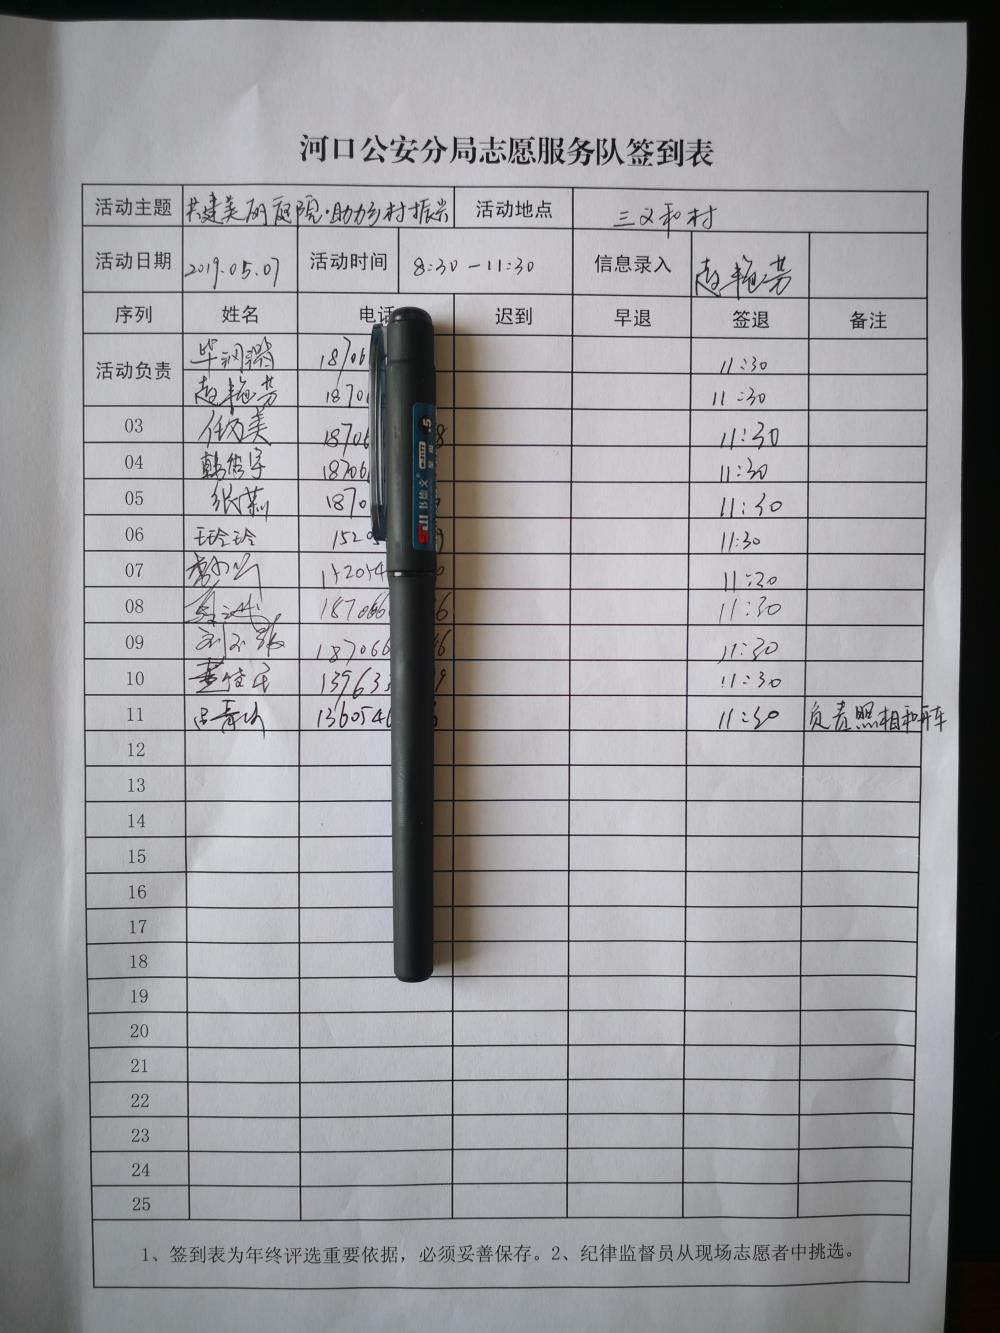 河口公安分局志愿服务队签到表
活动主题 共建美丽庭院·助力乡村振兴 活动地点 三义和村
活动日期 2019.05.07 活动时间 8:30-11:30 信息录入 赵艳芳
序列 姓名 电话 迟到 早退 签退 备注
活动负责 毕 18706 11:30
赵艳芳 1870 11:30
03 任 美 18706 8 11:30
04 韩 宇 18706 11:30
05 张莉 1870 11:30
06 王玲玲 1520 9 11:30
07 152054 0 11:30
08 187066 6 11:30
09 187066 6 11:30
10 董佳 13963 9 11:30
11 吕青 1360546 11:30 负责照相和开车
12
13
14
15
16
17
18
19
20
21
22
23
24
25
1、签到表为年终评选重要依据，必须妥善保存。2、纪律监督员从现场志愿者中挑选。